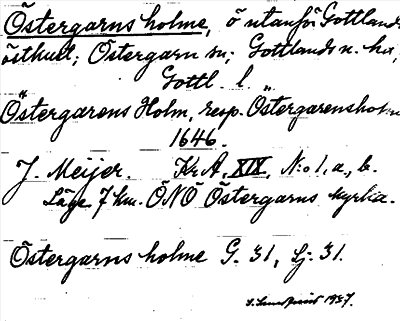 Östergarns holme, ö utanför Gottlands
östkust; Östergarn sn; Gottlands n. hd,
Gottl. l.
Östergarens Holm, resp. Östergarensholm
1646.
J. Meijer. Kr.A. XIX, N:o 1, a, b.
Läge 7 km. ÖNÖ Östergarns kyrka.
Östergarns holme G. 31, Sj. 31.
1937.